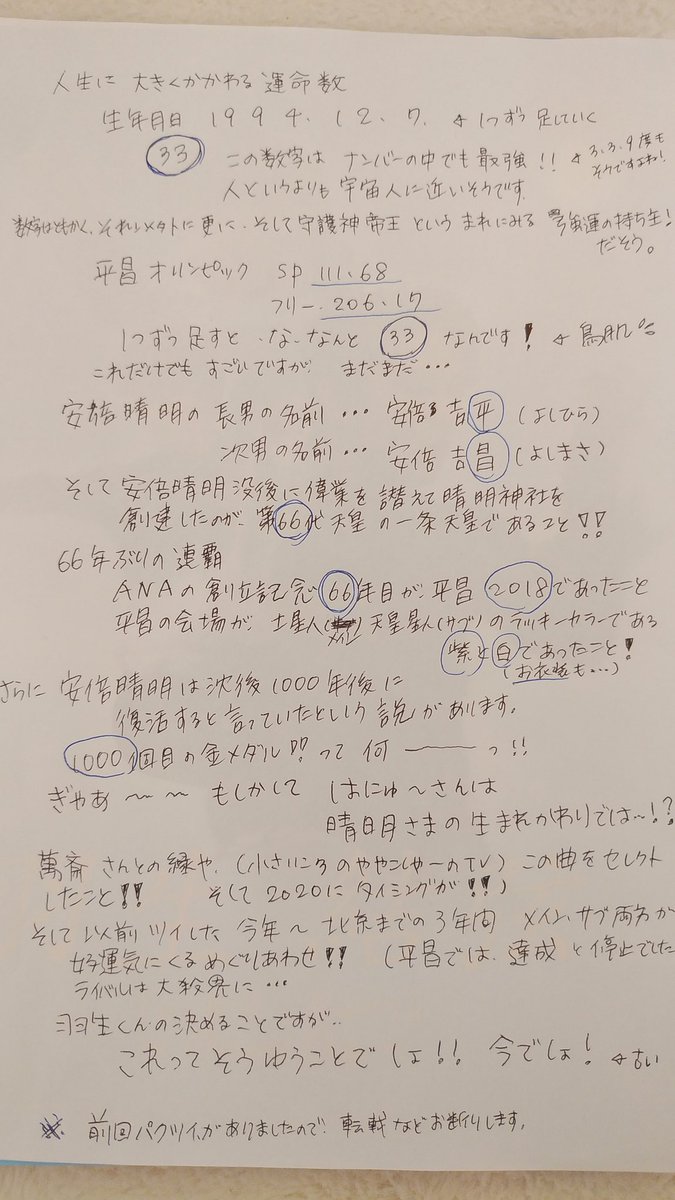 人生に 大きくかかわる 運命数
生年月日 1994.12.7. ← 1つずつ 足していく
33 この数字は ナンバーの中でも 最強!! ← 3.3.9度も そうですよね!
人というよりも 宇宙人に近いそうです。
数字はともかく、それにメタトに更に、そして守護神帝王 という まれにみる 強運の持ち主!
だそう。
平昌 オリンピック SP 111.68
フリー. 206.17
1つずつ 足すと ‥な、なんと 33 なんです! ← 鳥肌
これだけでも すごいですが、 まだまだ…
安倍晴明の 長男の名前 … 安倍 吉平 (よしひら)
次男の名前 … 安倍 吉昌 (よしまさ)
そして 安倍晴明 没後に 偉業を 讃えて 晴明神社を
創建したのが、第66代 天皇 の一条天皇であること!!
66年ぶりの連覇
ANAの創立記念 66年目が、平昌 2018であったこと
平昌の会場が、土星人(メイン) 天皇星人(サブ)のラッキーカラーである
紫と白であったこと!
(お衣装も…)
さらに 安倍晴明は 没後1000年後に
復活すると言っていたという 説が あります。
1000個目の金メダル!! って 何ーーっ!!
ぎゃあ〜〜 もしかして はにゅ〜さんは
晴明さまの 生まれかわりでは〜!?
萬斎 さんとの縁や、(小さいころのややこしや〜のTV) この曲をセレクト
したこと!! そして 2020に タイミングが!!)
そして 以前 ツイした 今年〜 北京までの 3年間 メイン、サブ 両方が
好運気にくる めぐりあわせ!! (平昌では、達成 と 停止でした
ライバルは 大殺界に …
羽生くんの決めることですが‥
これって そうゆうことで しょ!! 今でしょ! ← 古い
※. 前回 パクツイが ありましたので、転載 など お断りします。